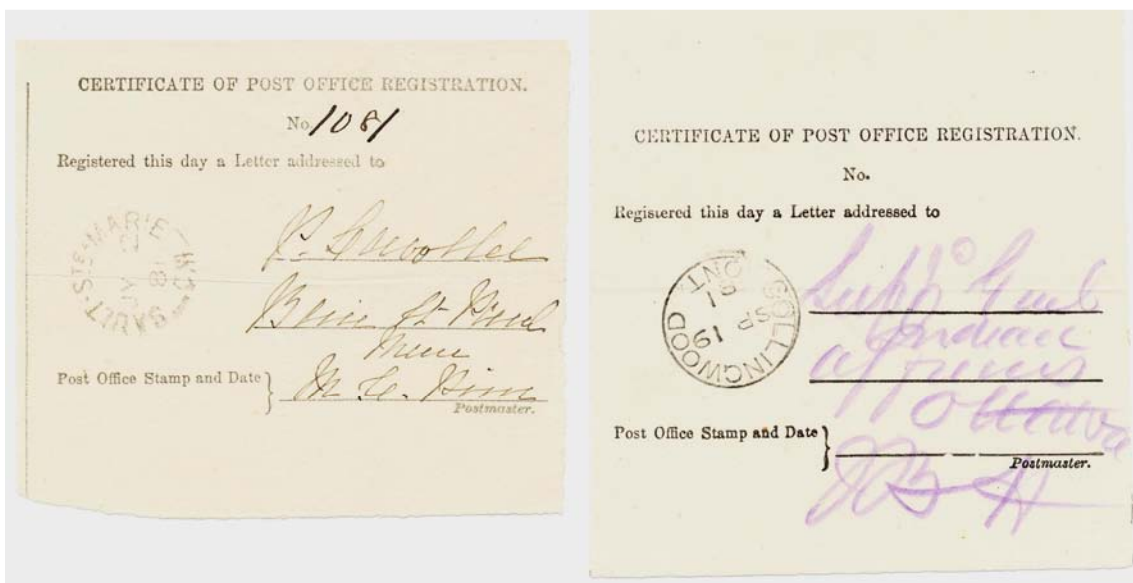 CERTIFICATE OF POST OFFICE REGISTRATION.
No. 1081
Registered this day a Letter addressed to
SAULT-STE-MARIE
JY
81
St Paul
Minn
Post Office Stamp and Date }
Postmaster.
CERTIFICATE OF POST OFFICE REGISTRATION.
No.
Registered this day a Letter addressed to
COLLINGWOOD ONT.
SP 19
81
Supt Genl
Indian
Affairs
Ottawa
Post Office Stamp and Date }
Postmaster.